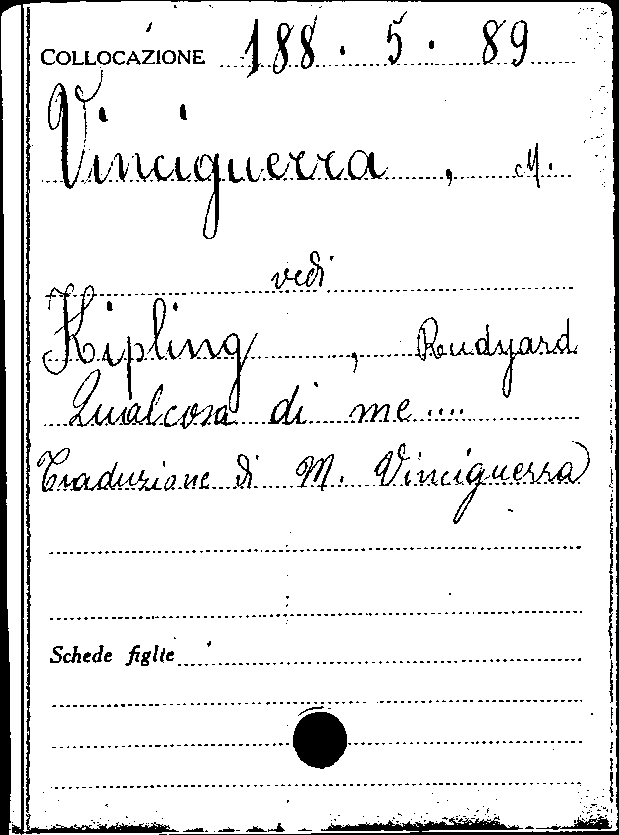 COLLOCAZIONE 188. 5. 89
Vinciguerra, M.
vedi
Kipling, Rudyard
Qualcosa di me....
Traduzione di M. Vinciguerra
Schede figlie